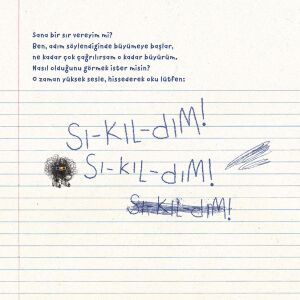 Sana bir sır vereyim mi?
Ben, adım söylendiğinde büyümeye başlar,
ne kadar çok çağrılırsam o kadar büyürüm.
Nasıl olduğunu görmek ister misin?
O zaman yüksek sesle, hissederek oku lütfen:
SI-KIL-DIM!
SI-KIL-DIM!
SI-KIL-DIM!